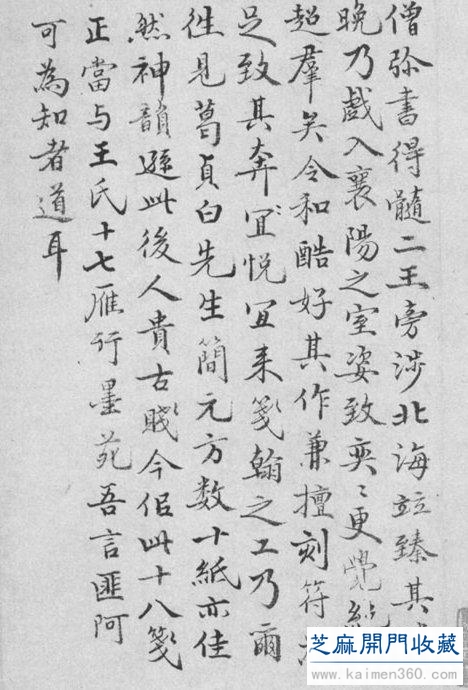 僧弥書得髓二王旁涉北海竝臻其
晚乃戲入襄陽之室姿致奕〻更覺絶
超羣矣令和酷好其作兼擅刻符
足致其奔宜悦宜来箋翰之工乃爾
徃見葛貞白先生簡元方数十紙亦佳
然神韻遜此後人貴古賤今佀此十八箋
正當与王氏十七雁行墨苑吾言匪阿
可為知者道耳
芝麻開門收藏
www.kaimen360.com